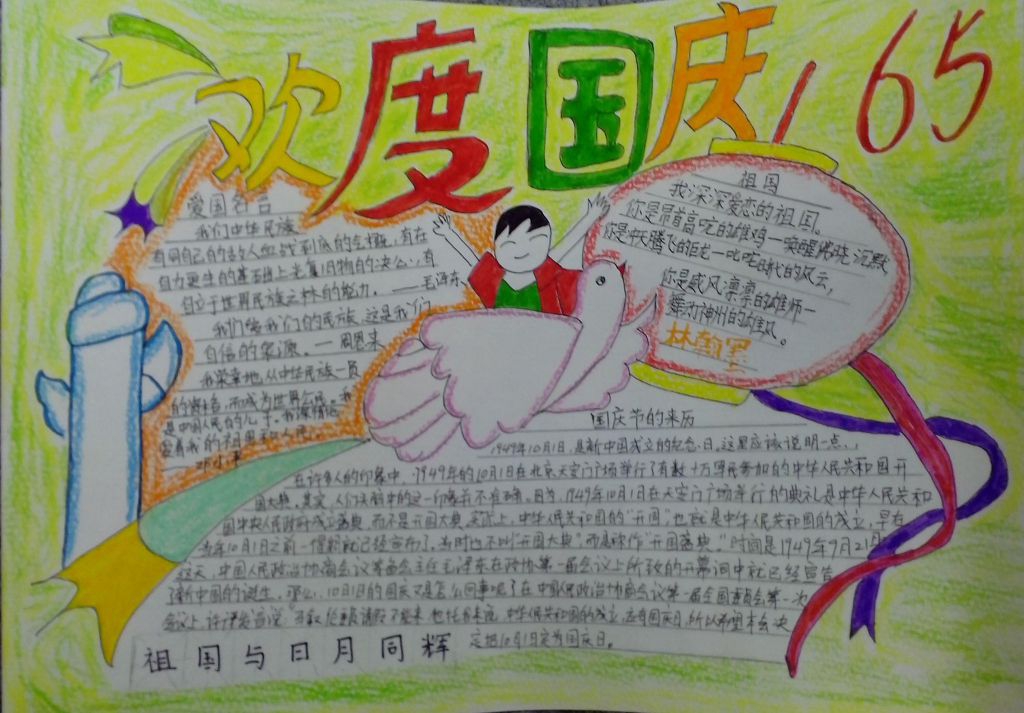 欢度国庆 65
爱国名言
我们中华民族
有同自己的敌人血战到底的气概,有在
自力更生的基础上光复旧物的决心,有
自立于世界民族之林的能力。——毛泽东
我们爱我们的民族,这是我们
自信的泉源。—周恩来
我荣幸地从中华民族一员
的资格,而成为世界公民。我
是中国人民的儿子。我深情地
爱着我的祖国和人民。
邓小平
祖国
我深深爱恋的祖国。
你是昂首高吃的雄鸡—唤醒拂晓沉默
你是冲天腾飞的巨龙—叱咤时代的风云,
你是威风凛凛的雄师—
舞动神州的雄风。
林翰墨
国庆节的来历
1949年10月1日,是新中国成立的纪念日,这里应该说明一点,
在许多人的印象中,1949年的10月1日在北京天安门广场举行了有数十万军民参加的中华人民共和国开
国大典。其实,人们头脑中的这一印象并不准确。因为,1949年10月1日在天安门广场举行的典礼是中华人民共和
国中央人民政府成立盛典,而不是开国大典。实际上,中华人民共和国的“开国”,也就是中华人民共和国的成立,早在
当年10月1日之前一个星期就已经宣布了。当时也不叫“开国大典”,而是称作“开国盛典”。时间是1949年9月21日
这天,中国人民政治协商会议筹备会主任毛泽东在政协第一届会议上所致的开幕词中就已经宣告
了新中国的诞生。那么,10月1日的国庆又是怎么回事呢?在中国人民政治协商会议第一届全国委员会第一次
会议上,许广平发言说:马叙伦委员请假不能来,他托我来说,中华人民共和国的成立,应有国庆日,所以希望本会决
定把10月1日定为国庆日。
祖国与日月同辉